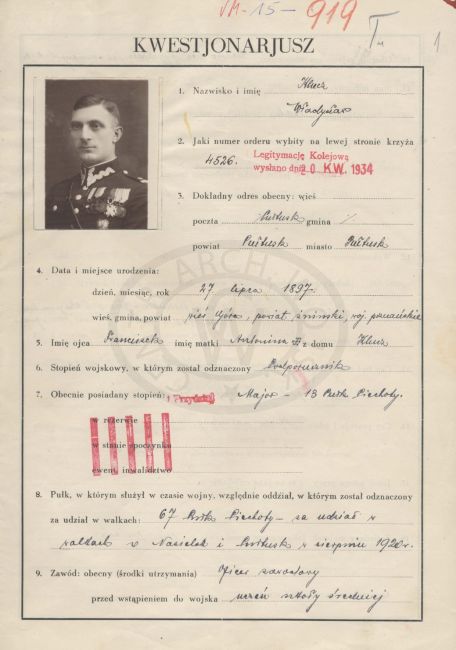 VM-15- 919 I 1
KWESTJONARJUSZ
1. Nazwisko i imię Klucz
Władysław
2. Jaki numer orderu wybity na lewej stronie krzyża
4526. Legitymację Kolejową
wysłano dnia 0 KW. 1934
3. Dokładny odres obecny: wieś
poczta Pułtusk gmina %
powiat Pułtusk miasto Pułtusk
4. Data i miejsce urodzenia:
dzień, miesiąc, rok 27 lipca 1897.
wieś, gmina, powiat wieś Góra, powiat żniński, woj. poznańskie
5. Imię ojca Franciszek imię matki Antonina z domu Klucz
6. Stopień wojskowy, w którym został odznaczony Podporucznik
7. Obecnie posiadany stopień: i Przydział Major - 13 Pułk Piechoty.
w rezerwie
w stanie spoczynku
ewent. inwalidztwo
8. Pułk, w którym służył w czasie wojny, względnie oddział, w którym został odznaczony
za udział w walkach: 67 Pułk Piechoty - za udział w
walkach o Nasielsk i Pułtusk w sierpniu 1920 r.
9. Zawód: obecny (środki utrzymania) Oficer zawodowy
przed wstąpieniem do wojska uczeń szkoły średniej